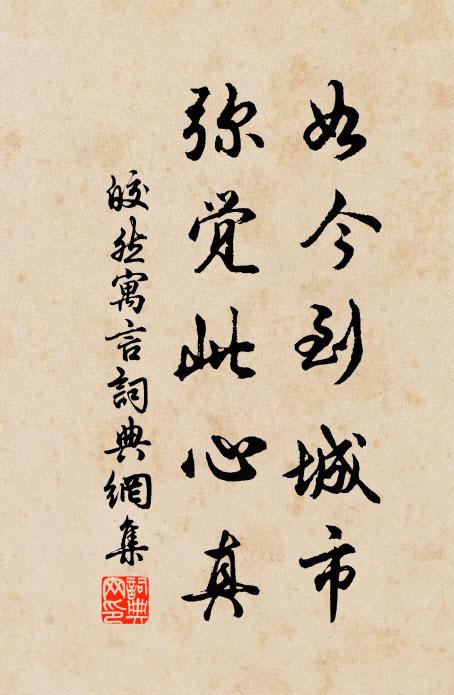 如今到城市
弥觉此心真
皎然寓言詞典網集
詞典
网印